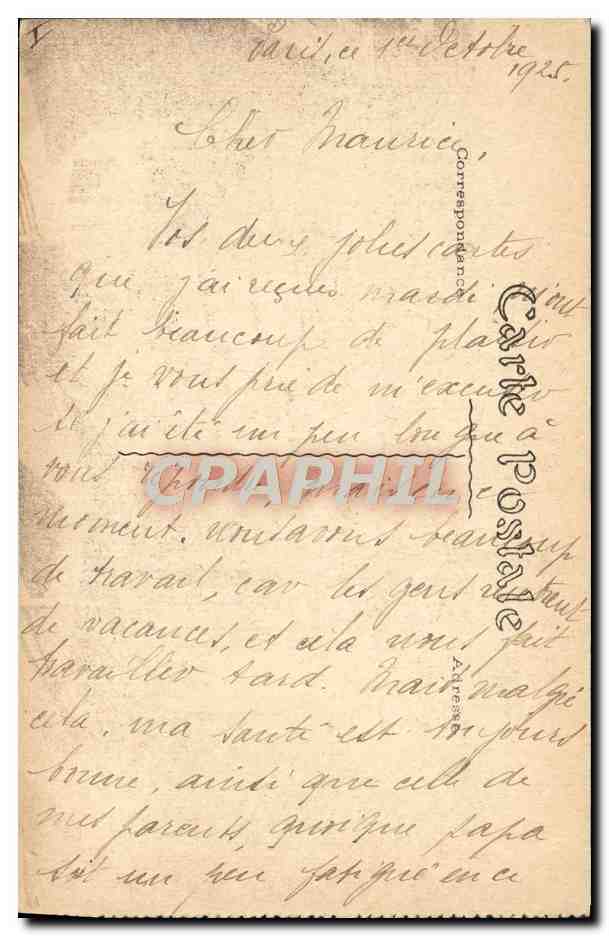 Paris, ce 1er Octobre
1925.
Cher Maurice,
Vos deux jolies cartes
que j'ai reçues mardi m'ont
fait beaucoup de plaisir
et je vous prie de m'excuser
si j'ai été un peu longue à
vous répondre, mais en ce
moment, nous avons beaucoup
de travail, car les gens rentrent
de vacances, et cela nous fait
travailler tard. Mais malgré
cela, ma santé est toujours
bonne, ainsi que celle de
mes parents, quoique papa
soit un peu fatigué en ce
Correspondance
Carte Postale
Adresse
CPAPHIL